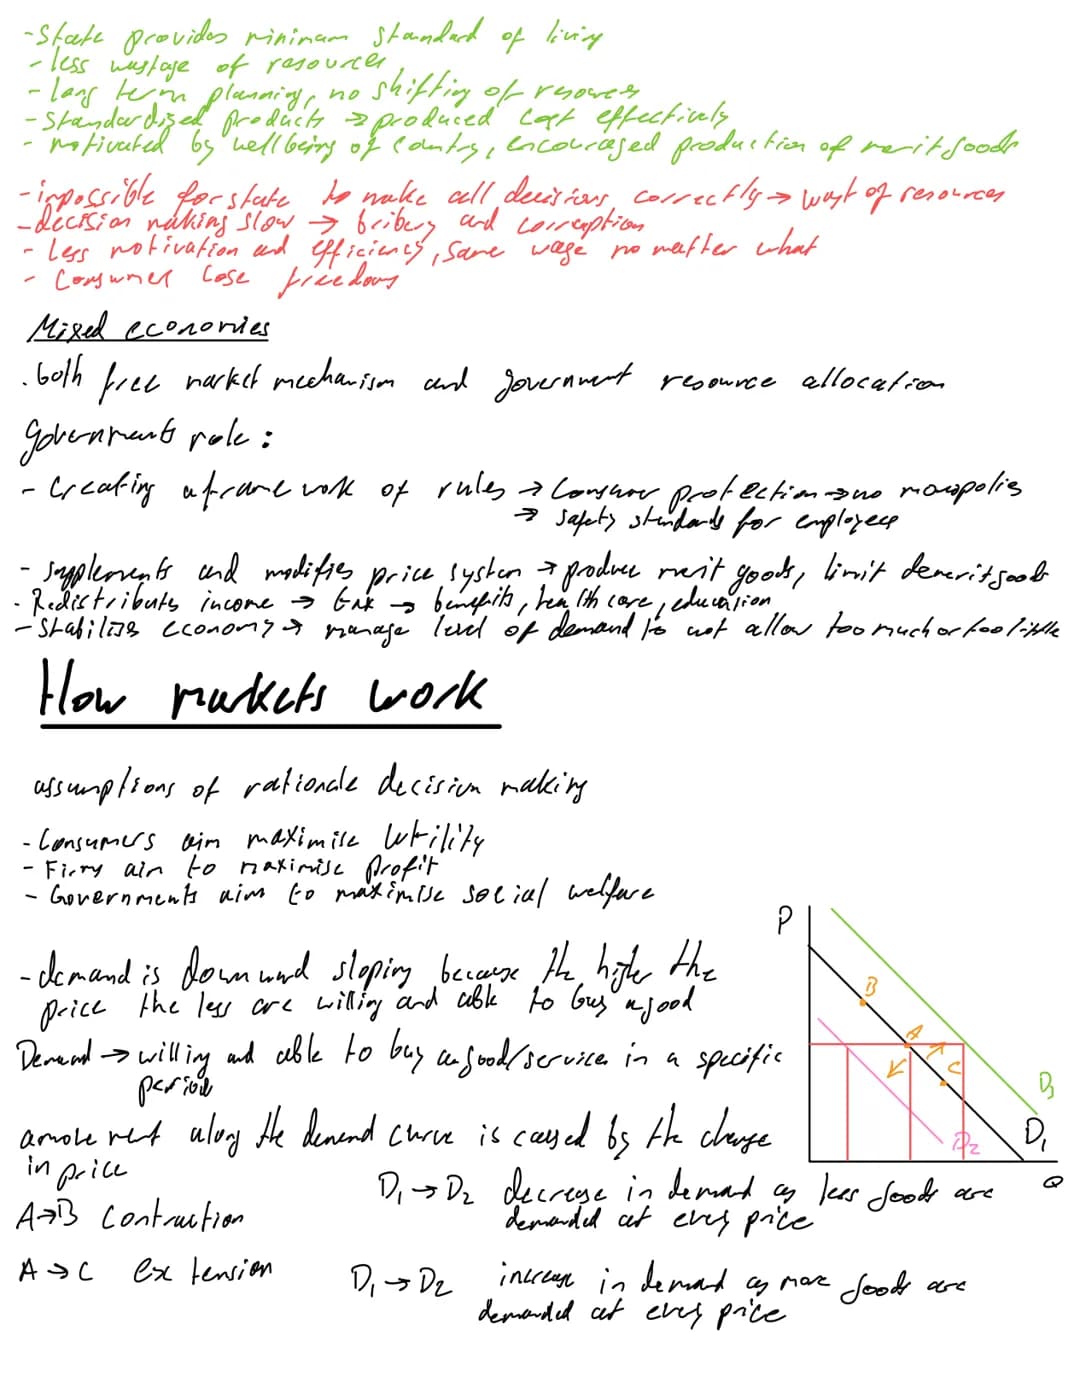 -State provides minimum standard of living
- less wastage of resources
- long term planning, no shifting of resources
- Standardized products → produced cost effectively
- motivated by wellbeing of country, encouraged production of merit goods
- impossible for state to make all decisions correctly → wast of resources
- decision making slow → bribery and corruption
- Less motivation and efficiency, same wage no matter what
- Consumer lose freedom
Mixed economies
. both free market mechanism and government resource allocation
Governments role :
- Creating a framework of rules → Consumer protection → no monopolis
→ safety standards for employees
- supplements and modifies price system → produce merit goods, limit demerit goods
- Redistributs income → tax → benefits, health care, education
- Stabilizes economy → manage level of demand to not allow too much or too little
How markets work
assumptions of rationale decision making
- Consumers aim maximise utility
- Firms aim to maximise profit
- Governments aim to maximise social welfare
- demand is downward sloping because the higher the
price the less are willing and able to buy a good
Demand → willing and able to buy a good/service in a specific
period
a movement along the demand curve is caused by the change
in price
A→B Contraction
A→C extension
P
B
A
C
D3
D2
D1
Q
D1→D2 decrease in demand as less goods are
demanded at every price
D1→D2 increase in demand as more goods are
demanded at every price